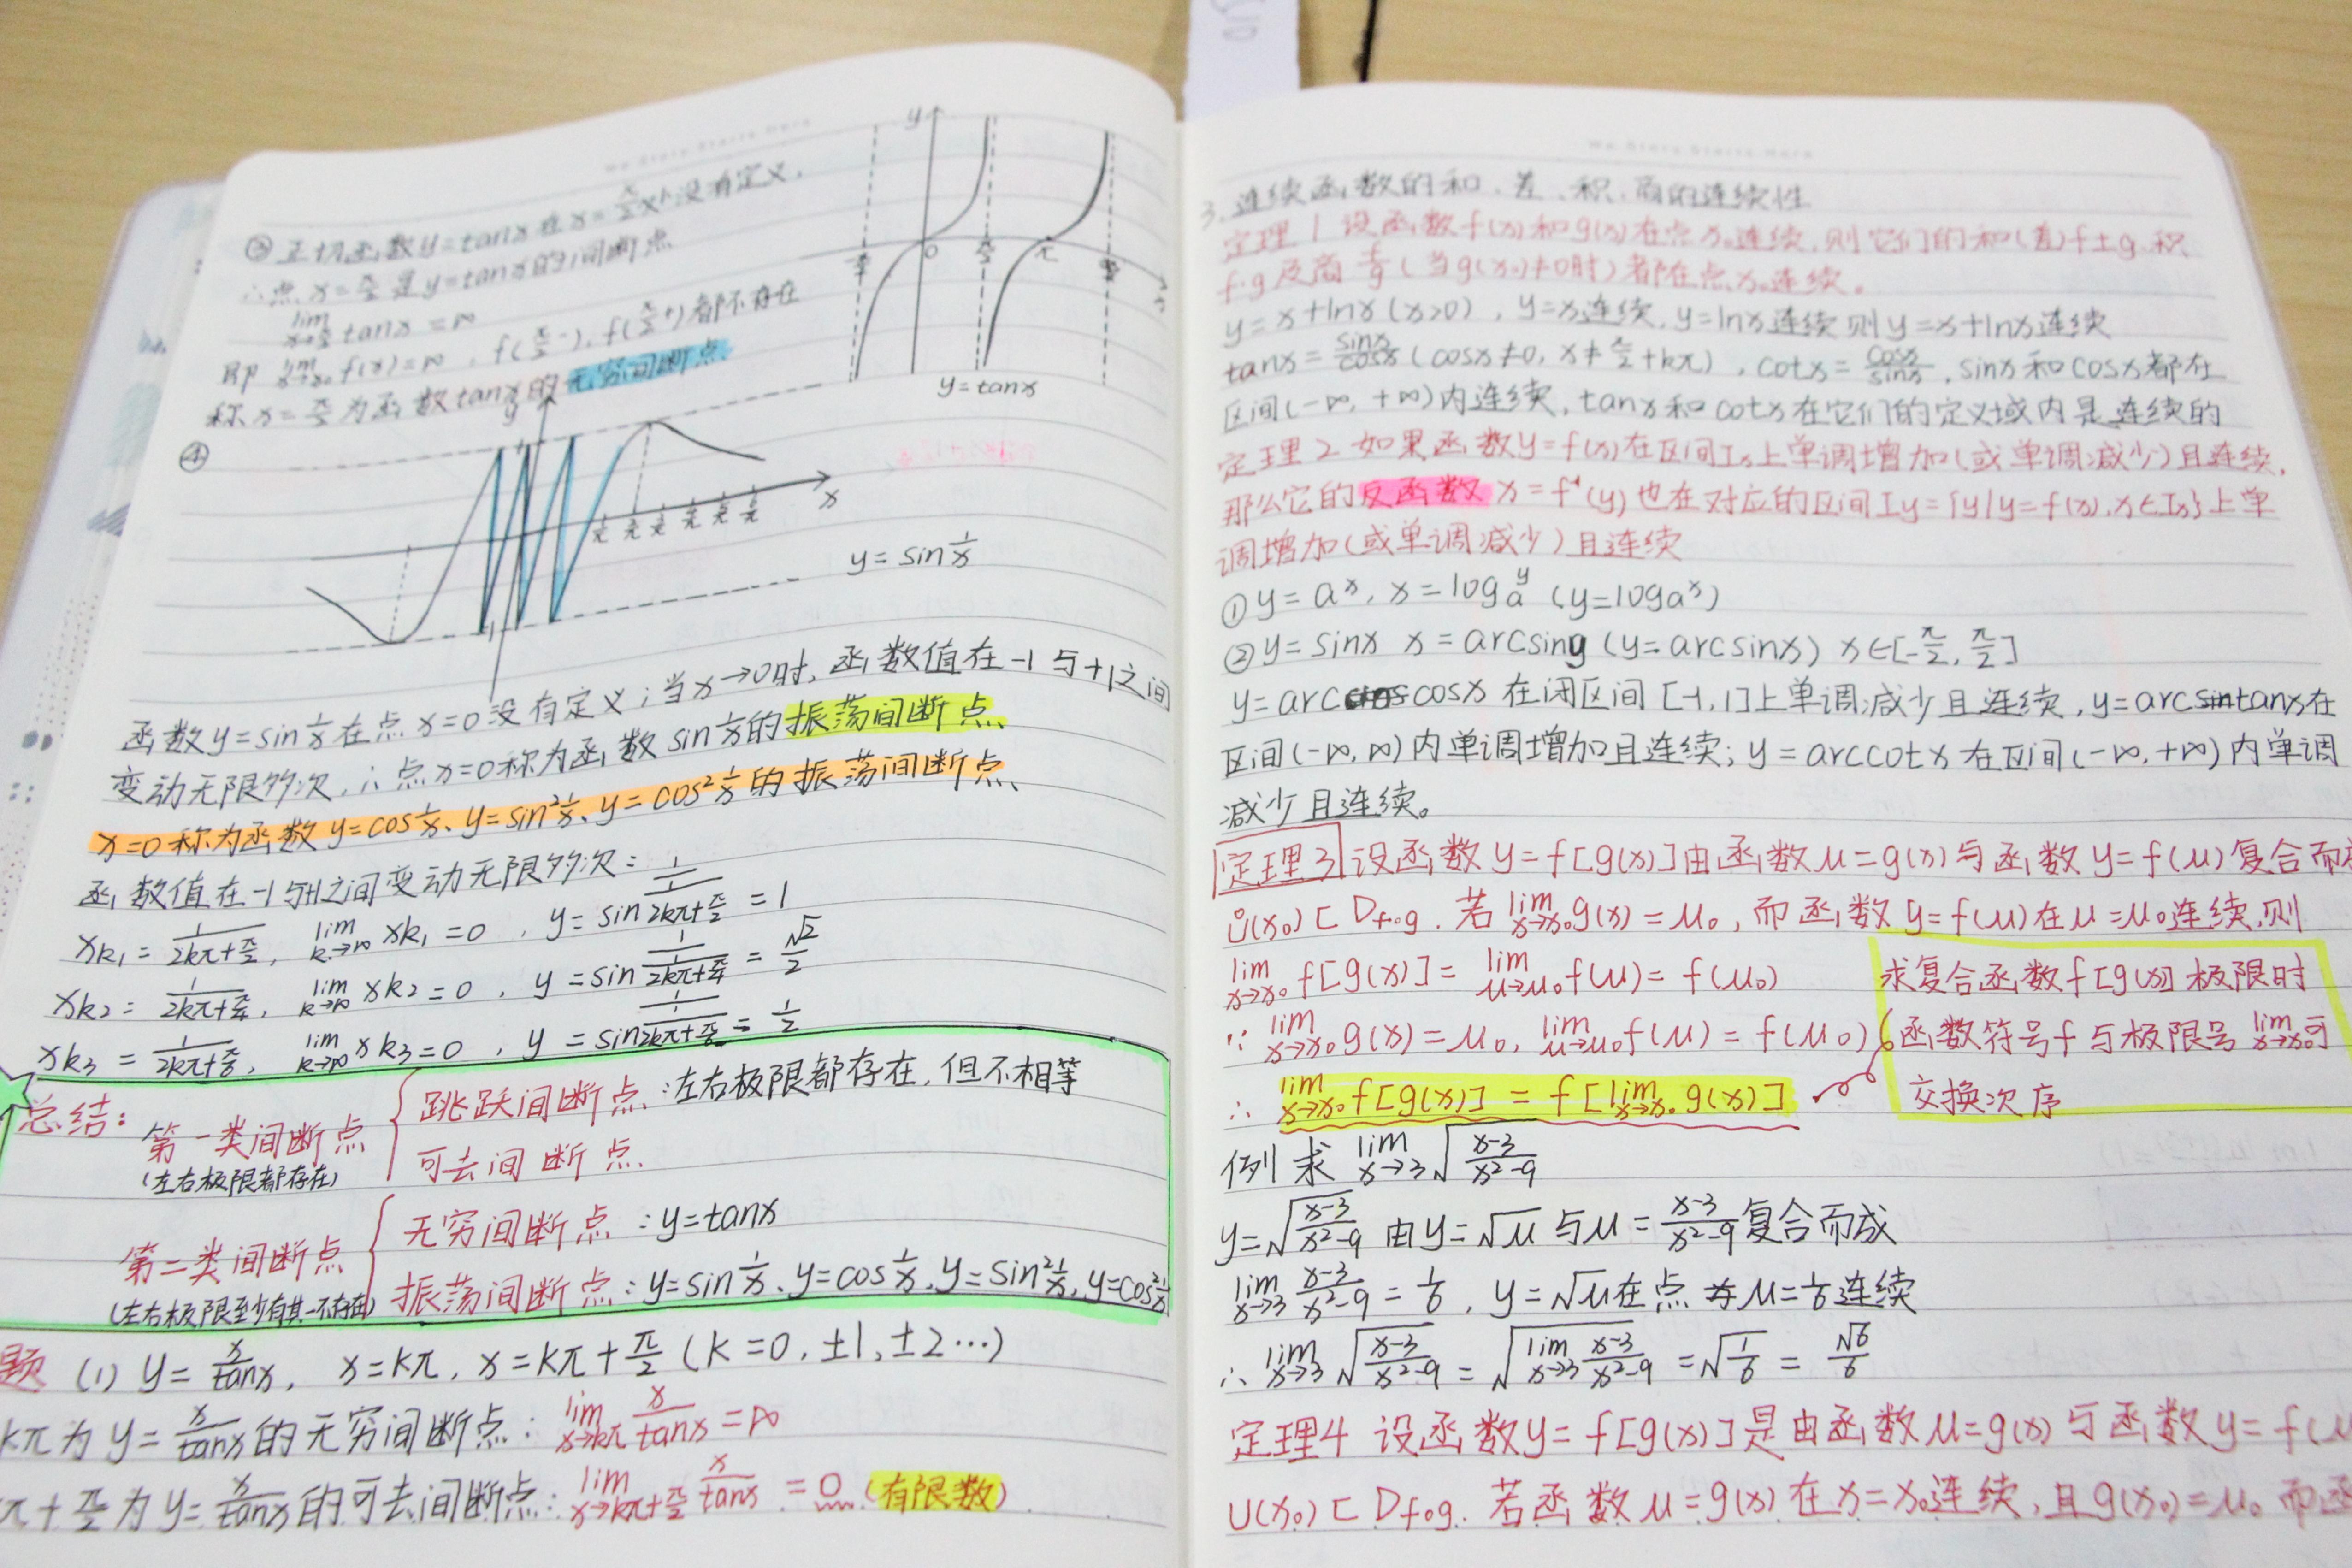 ③正切函数y=tanx在x=π/2处没有定义,
∴点x=π/2是y=tanx的间断点
lim x→π/2 tanx=∞
即 lim x→x₀ f(x)=∞, f(π/2⁻), f(π/2⁺)都不存在
称x=π/2为函数tanx的无穷间断点
y
0
π/2
π
x
y=tanx
④
y
1
-1
x
y=sin1/x
函数y=sin1/x在点x=0没有定义;当x→0时,函数值在-1与+1之间
变动无限多次,∴点x=0称为函数sin1/x的振荡间断点、
x=0称为函数y=cos1/x、y=sin²1/x、y=cos²1/x的振荡间断点、
函数值在-1与+1之间变动无限多次:
xk₁=1/(2kπ+π/2), lim k→∞ xk₁=0, y=sin1/(1/(2kπ+π/2))=1
xk₂=1/(2kπ+π/4), lim k→∞ xk₂=0, y=sin1/(1/(2kπ+π/4))=√2/2
xk₃=1/(2kπ+π/6), lim k→∞ xk₃=0, y=sin1/(1/(2kπ+π/6))=1/2
总结:
第一类间断点
(左右极限都存在)
跳跃间断点:左右极限都存在,但不相等
可去间断点
第二类间断点
(左右极限至少有其一不存在)
无穷间断点:y=tanx
振荡间断点:y=sin1/x、y=cos1/x、y=sin²1/x、y=cos²1/x
题 (1) y=x/tanx, x=kπ, x=kπ+π/2 (k=0,±1,±2…)
kπ为y=x/tanx的无穷间断点: lim x→kπ x/tanx=∞
π+π/2为y=x/tanx的可去间断点: lim x→kπ+π/2 x/tanx=0 (有限数)
3.连续函数的和、差、积、商的连续性
定理1 设函数f(x)和g(x)在点x₀连续,则它们的和(差)f±g,积
f·g及商f/g(当g(x₀)≠0时)都在点x₀连续。
y=x+lnx(x>0), y=x连续,y=lnx连续则y=x+lnx连续
tanx=sinx/cosx(cosx≠0, x≠π/2+kπ), cotx=cosx/sinx, sinx和cosx都在
区间(-∞,+∞)内连续,tanx和cotx在它们的定义域内是连续的
定理2 如果函数y=f(x)在区间Ix上单调增加(或单调减少)且连续,
那么它的反函数x=f⁻¹(y)也在对应的区间Iy={y|y=f(x),x∈Ix}上单
调增加(或单调减少)且连续
①y=aˣ, x=logₐʸ (y=logₐˣ)
②y=sinx x=arcsiny (y=arcsinx) x∈[-π/2,π/2]
y=arccosx在闭区间[-1,1]上单调减少且连续,y=arctanx在
区间(-∞,∞)内单调增加且连续;y=arccotx在区间(-∞,+∞)内单调
减少且连续。
定理3 设函数y=f[g(x)]由函数μ=g(x)与函数y=f(μ)复合而成
Ů(x₀)⊂Df∘g. 若lim x→x₀ g(x)=μ₀,而函数y=f(μ)在μ=μ₀连续,则
lim x→x₀ f[g(x)]=lim μ→μ₀ f(μ)=f(μ₀)
∵ lim x→x₀ g(x)=μ₀, lim μ→μ₀ f(μ)=f(μ₀)
∴ lim x→x₀ f[g(x)]=f[lim x→x₀ g(x)]
求复合函数f[g(x)]极限时
函数符号f与极限号lim x→x₀可
交换次序
例 求 lim x→3 √((x-3)/(x²-9))
y=√((x-3)/(x²-9)) 由y=√μ与μ=(x-3)/(x²-9)复合而成
lim x→3 (x-3)/(x²-9)=1/6, y=√μ在点μ=1/6连续
∴ lim x→3 √((x-3)/(x²-9))=√(lim x→3 (x-3)/(x²-9))=√(1/6)=√6/6
定理4 设函数y=f[g(x)]是由函数μ=g(x)与函数y=f(μ
U(x₀)⊂Df∘g. 若函数μ=g(x)在x=x₀连续,且g(x₀)=μ₀ 而函